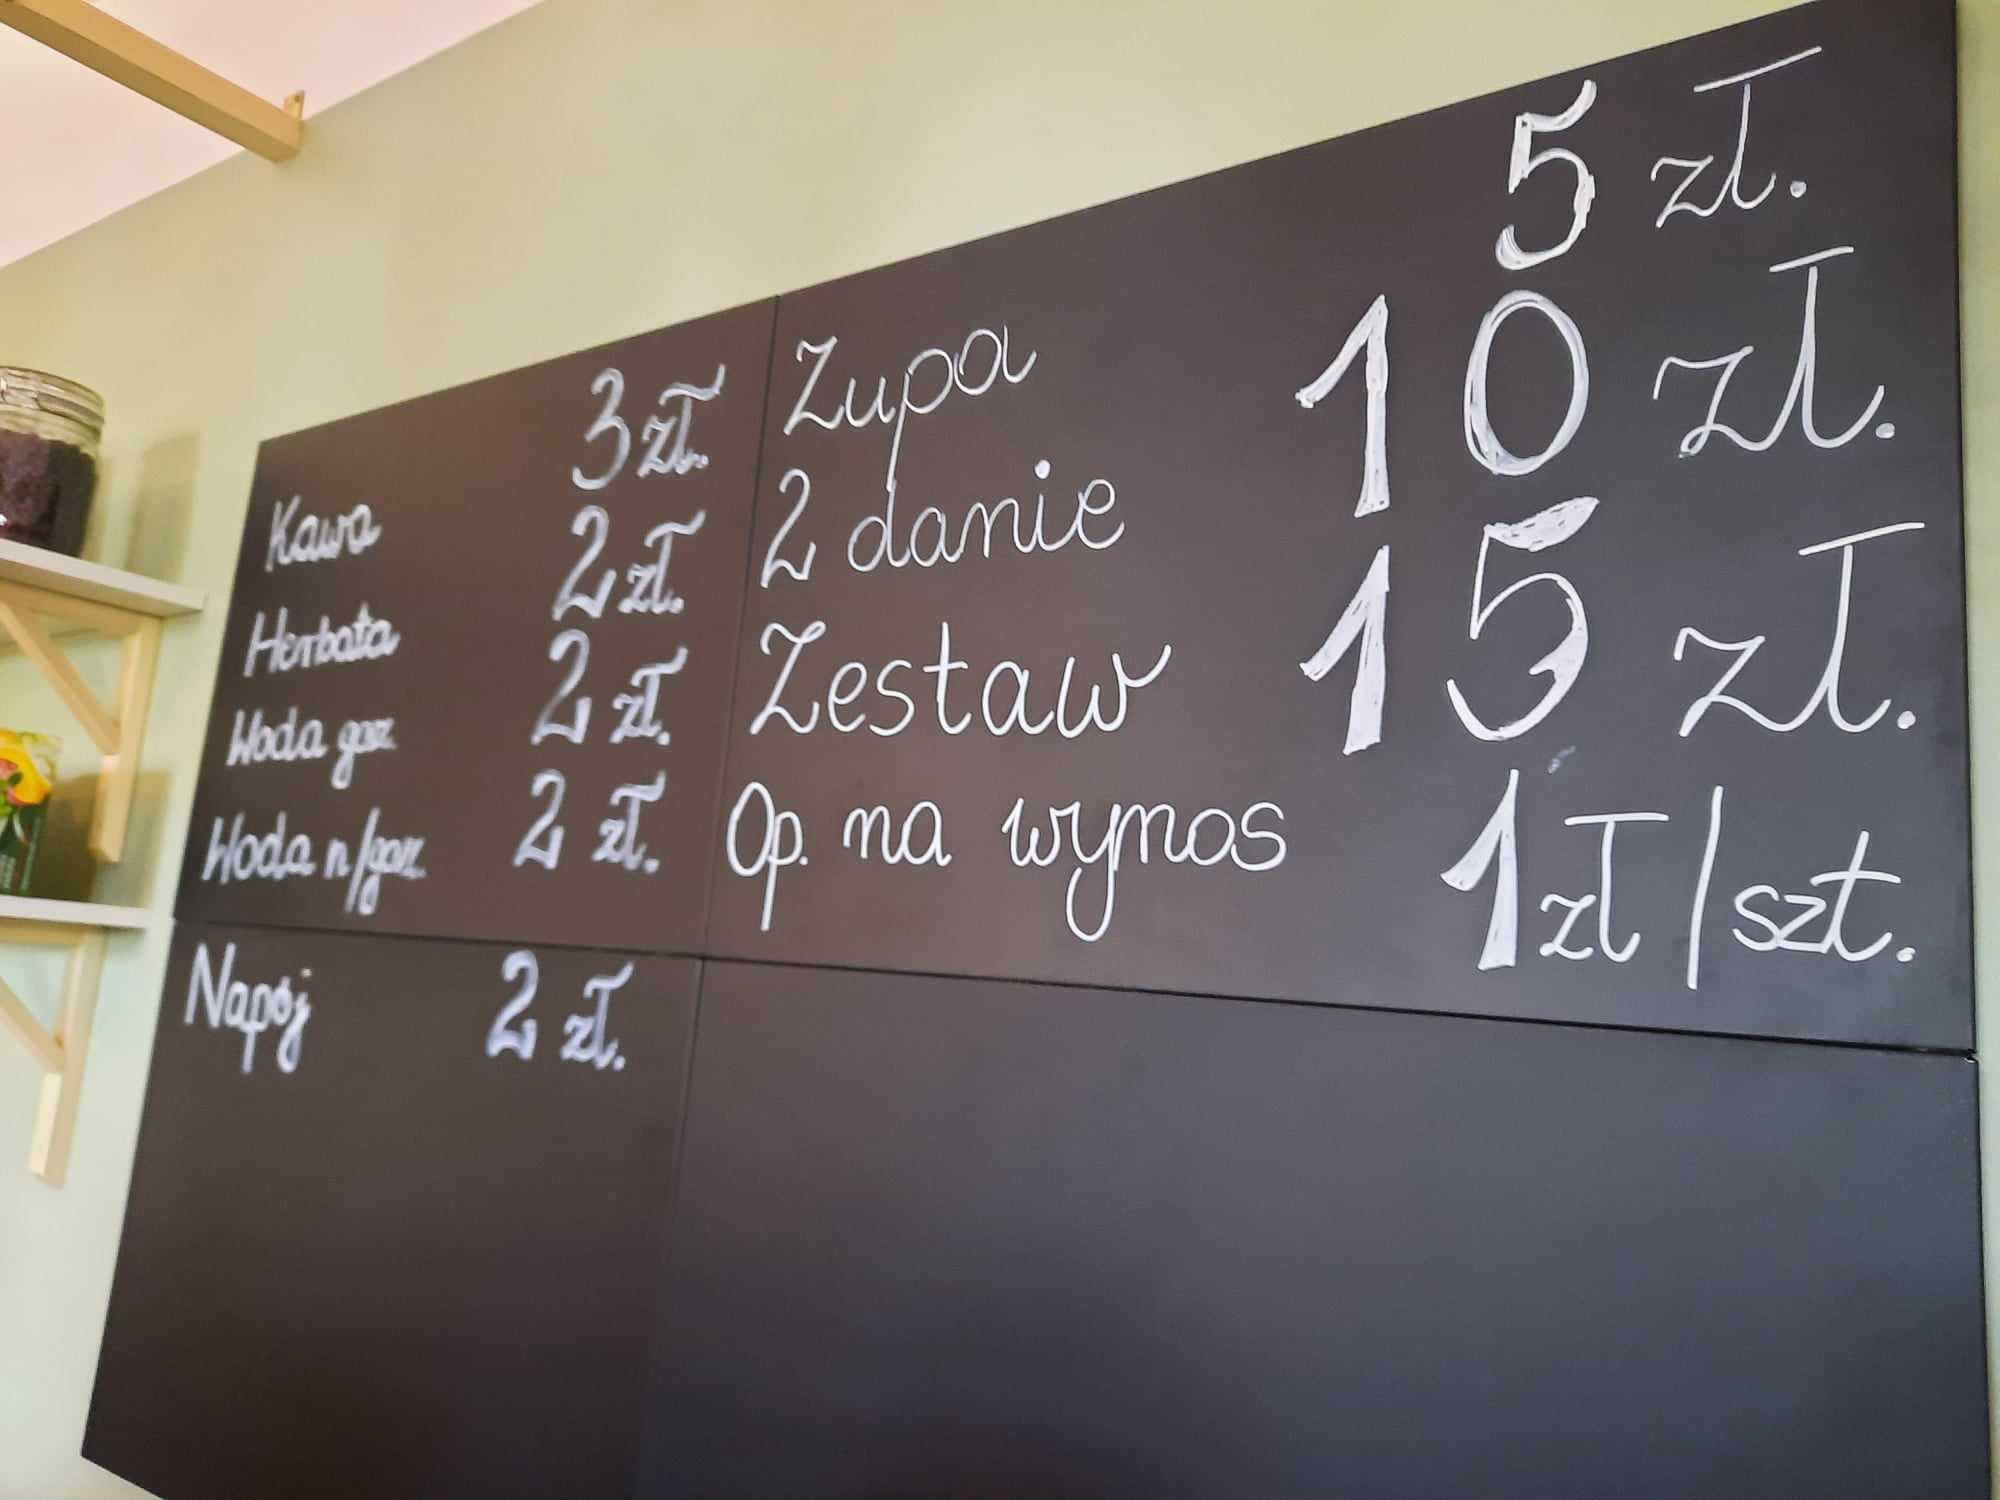 Kawa 3 zł.
Herbata 2 zł.
Woda gaz. 2 zł.
Woda n/gaz. 2 zł.
Napój 2 zł.
Zupa 5 zł.
2 danie 10 zł.
Zestaw 15 zł.
Op. na wynos 1 zł/szt.